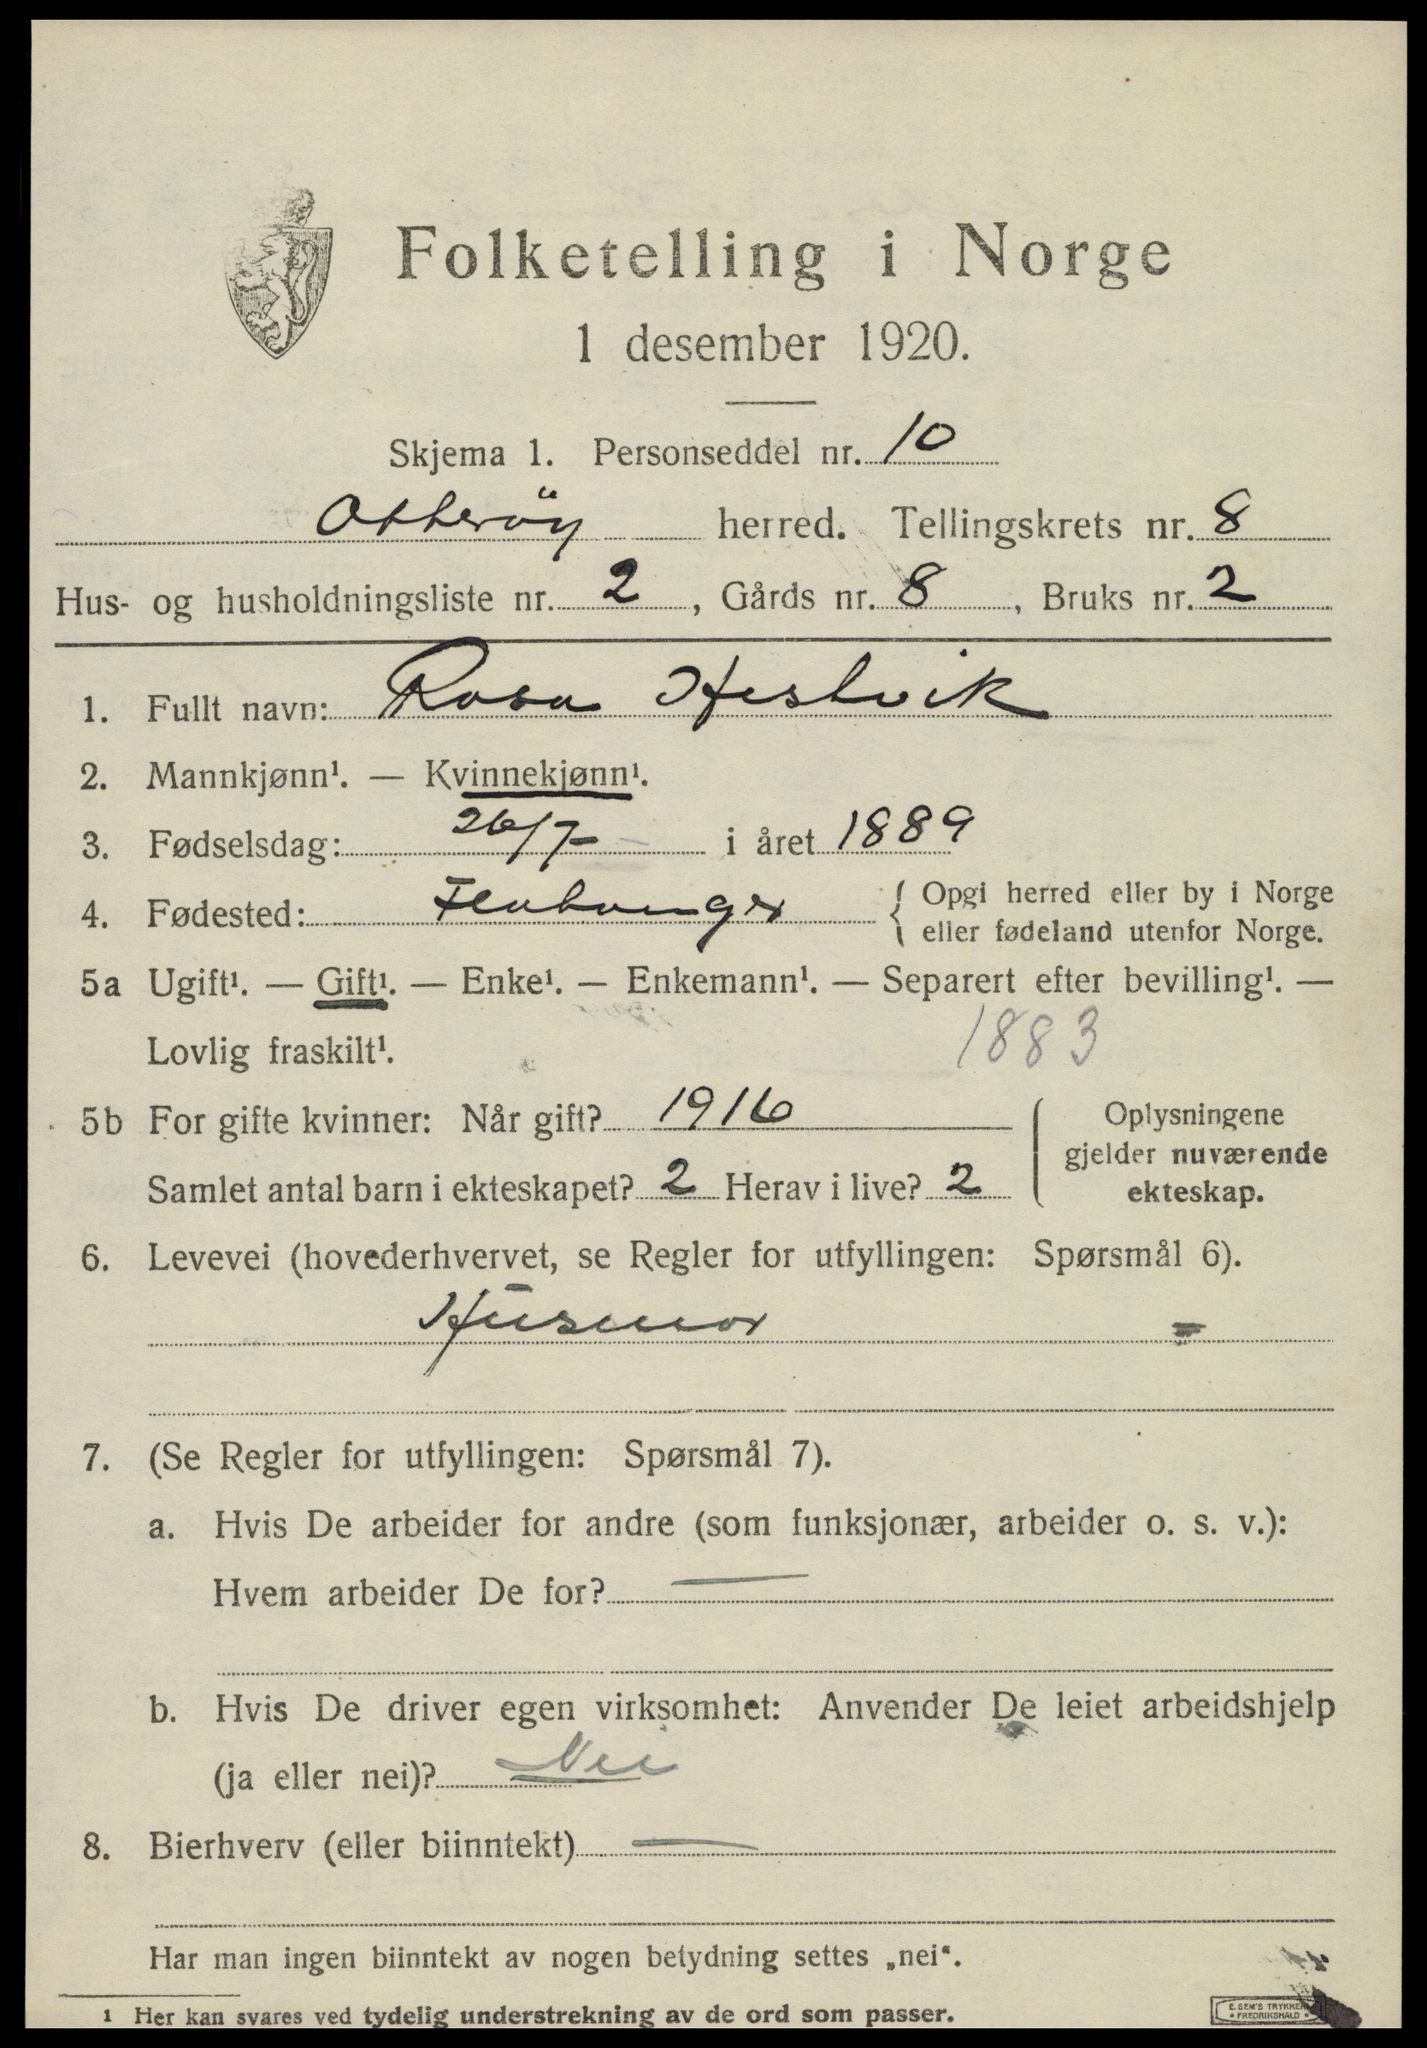 Folketelling i Norge
1 desember 1920.
Skjema 1. Personseddel nr. 10
Otterøy herred. Tellingskrets nr. 8
Hus- og husholdningsliste nr. 2, Gårds nr. 8, Bruks nr. 2
1. Fullt navn: Rosa Hestvik
2. Mannkjønn¹. — Kvinnekjønn¹.
3. Fødselsdag: 26/7 i året 1889
4. Fødested: Flatanger { Opgi herred eller by i Norge
eller fødeland utenfor Norge.
5a Ugift¹. — Gift¹. — Enke¹. — Enkemann¹. — Separert efter bevilling¹. —
Lovlig fraskilt¹. 1883
5b For gifte kvinner: Når gift? 1916
Samlet antal barn i ekteskapet? 2 Herav i live? 2
Oplysningene
gjelder nuværende
ekteskap.
6. Levevei (hovederhvervet, se Regler for utfyllingen: Spørsmål 6).
Husmor
7. (Se Regler for utfyllingen: Spørsmål 7).
a. Hvis De arbeider for andre (som funksjonær, arbeider o. s. v.):
Hvem arbeider De for? —
b. Hvis De driver egen virksomhet: Anvender De leiet arbeidshjelp
(ja eller nei)? Nei
8. Bierhverv (eller biinntekt) —
Har man ingen biinntekt av nogen betydning settes „nei“.
1 Her kan svares ved tydelig understrekning av de ord som passer.
E. SEM'S TRYKKERI
• FREDRIKSHALD •